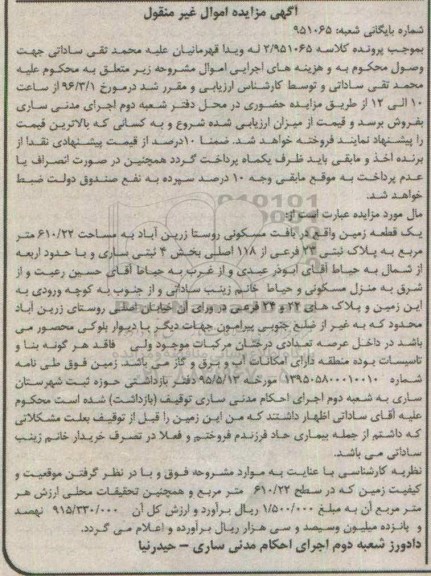 آگهی مزایده اموال غیر منقول
شماره بایگانی شعبه: ۹۵۱۰۶۵
بموجب پرونده کلاسه ۲/۹۵۱۰۶۵ له ویدا قهرمانیان علیه محمد تقی ساداتی جهت
وصول محکوم به و هزینه های اجرایی اموال مشروحه زیر متعلق به محکوم علیه
محمد تقی ساداتی و توسط کارشناس ارزیابی و مقرر شد درمورخ ۹۶/۳/۱ از ساعت
۱۰ الی ۱۲ از طریق مزایده حضوری در محل دفتر شعبه دوم اجرای مدنی ساری
بفروش برسد و قیمت از میزان ارزیابی شده شروع و به کسانی که بالاترین قیمت
را پیشنهاد نمایند فروخته خواهد شد. ضمنا ۱۰درصد از قیمت پیشنهادی نقدا از
برنده اخذ و مابقی باید ظرف یکماه پرداخت گردد همچنین در صورت انصراف یا
عدم پرداخت به موقع مابقی وجه ۱۰ درصد سپرده به نفع صندوق دولت ضبط
خواهد شد.
مال مورد مزایده عبارت است از:
یک قطعه زمین واقع در بافت مسکونی روستا زرین آباد به مساحت ۶۱۰/۲۲ متر
مربع به پلاک ثبتی ۲۳ فرعی از ۱۱۸ اصلی بخش ۴ ثبتی ساری و با حدود اربعه
از شمال به حیاط آقای ابوذر عبدی و از غرب به حیاط آقای حسین رعیت و از
شرق به منزل مسکونی و حیاط خانم زینب ساداتی و از جنوب به کوچه ورودی به
این زمین و پلاک های ۲۲ و ۲۴ فرعی در ورای آن خیابان اصلی روستای زرین آباد
محدود که به غیر از ضلع جنوبی پیرامون جهات دیگر با دیوار بلوکی محصور می
باشد در داخل عرصه تعدادی درختان مرکبات موجود ولی فاقد هر گونه بنا و
تاسیسات بوده منطقه دارای امکانات آب و برق و گاز می باشد زمین فوق طی نامه
شماره ۱۳۹۵۰۵۸۰۰۰۱۰۰۱۰ مورخه ۹۵/۵/۱۲ دفتر بازداشتی حوزه ثبت شهرستان
ساری به شعبه دوم اجرای احکام مدنی ساری توقیف (بازداشت) شده است محکوم
علیه آقای ساداتی اظهار داشتند که من این زمین را قبل از توقیف بعلت مشکلاتی
که داشتم از جمله بیماری حاد فرزندم فروختم و فعلا در تصرف خریدار خانم زینب
ساداتی می باشد.
نظریه کارشناسی با عنایت به موارد مشروحه فوق و با در نظر گرفتن موقعیت و
کیفیت زمین که در سطح ۶۱۰/۲۲ متر مربع و همچنین تحقیقات محلی ارزش هر
متر مربع آن به مبلغ ۱/۵۰۰/۰۰۰ ریال برآورد و ارزش کل آن ۹۱۵/۳۳۰/۰۰۰ نهصد
و پانزده میلیون وسیصد و سی هزار ریال برآورده و اعلام می گردد.
دادورز شعبه دوم اجرای احکام مدنی ساری – حیدرنیا